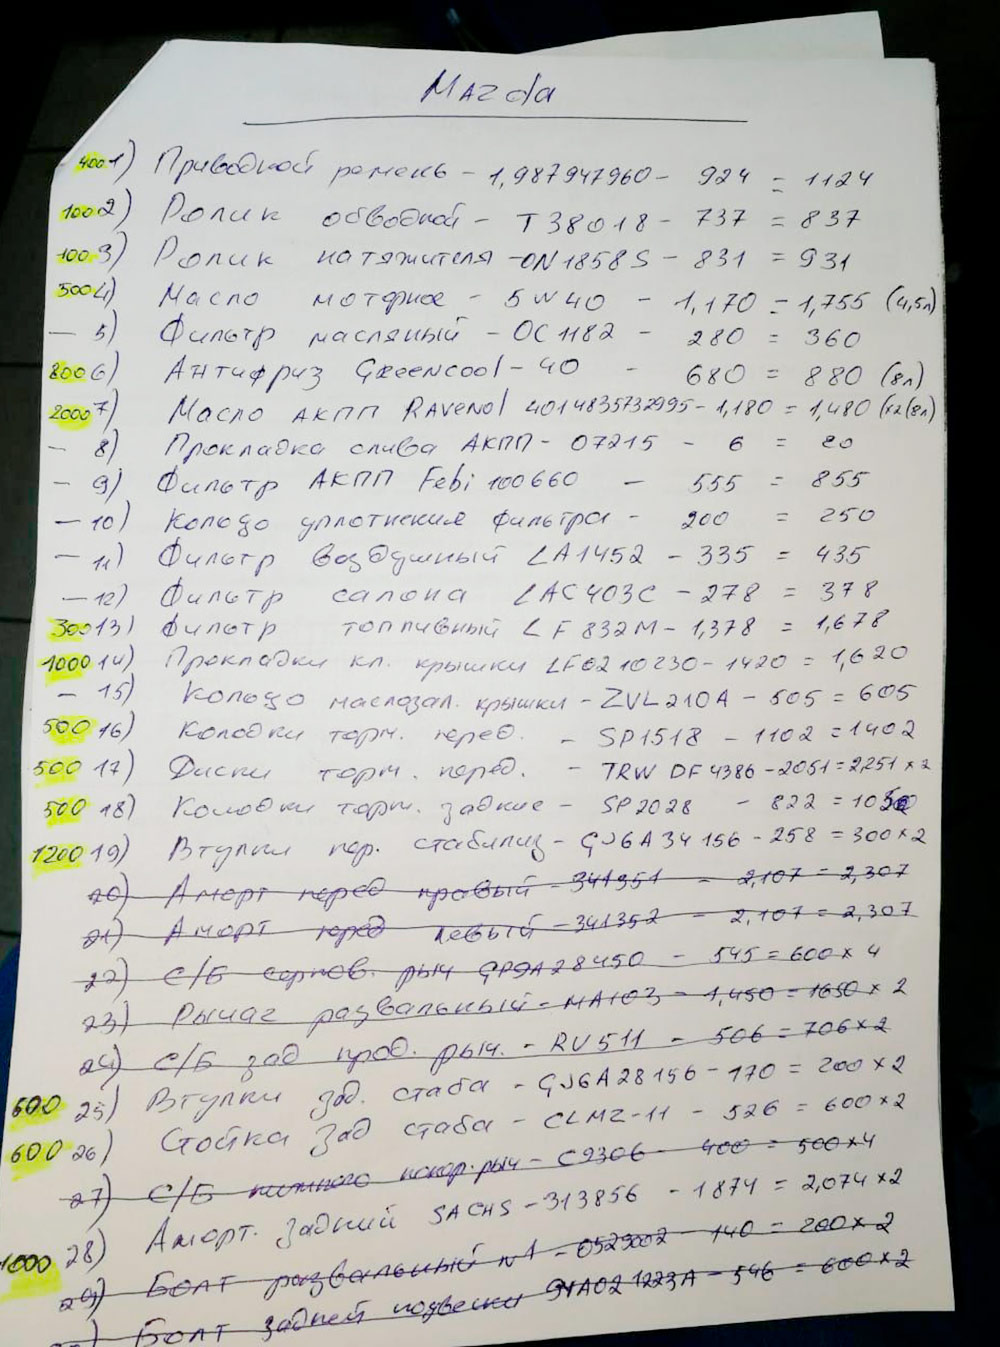 Mazda
400 1) Приводной ремень - 1,987947960 - 924 = 1124
100 2) Ролик обводной - T38018 - 737 = 837
100 3) Ролик натяжителя - ON1858S - 831 = 931
500 4) Масло моторное - 5W40 - 1,170 = 1,755 (4,5л)
- 5) Фильтр масляный - OC1182 - 280 = 360
800 6) Антифриз Greencool - 40 - 680 = 880 (8л)
2000 7) Масло АКПП Ravenol 4014835732995 - 1,180 = 1,480 (x2(8л)
- 8) Прокладка слива АКПП - 07215 - 6 = 20
- 9) Фильтр АКПП Febi 100660 - 555 = 855
- 10) Кольцо уплотнения фильтра - 200 = 250
- 11) Фильтр воздушный LA1452 - 335 = 435
- 12) Фильтр салона LAC403C - 278 = 378
300 13) Фильтр топливный LF832M - 1,378 = 1,678
1000 14) Прокладки кл. крышки LF0210230 - 1420 = 1,620
- 15) Кольцо маслозал. крышки - ZVL210A - 505 = 605
500 16) Колодки торм. перед. - SP1518 - 1102 = 1402
500 17) Диски торм. перед. - TRW DF4386 - 2051 = 2,251 x 2
500 18) Колодки торм. задние - SP2028 - 822 =
1200 19) Втулки пер. стабилиз - GJ6A34156 - 258 = 300 x 2
20) Аморт перед правый - 341351 - 2,107 = 2,307
21) Аморт перед левый - 341352 - 2,107 = 2,307
22) С/Б рыч GP9A28450 - 545 = 600 x 4
23) Рычаг развальный - MA103 - 1,450 = 1650 x 2
24) С/Б зад прод. рыч. - RU511 - 506 = 706 x 2
600 25) Втулки зад. стаба - GJ6A28156 - 170 = 200 x 2
600 26) Стойка зад стаба - CLMZ-11 - 526 = 600 x 2
27) С/Б нижнего попер. рыч - C9306 - 400 = 500 x 4
1000 28) Аморт. задний SACHS - 313856 - 1874 = 2,074 x 2
29) Болт развальный №1 - 0529002 - 140 = 200 x 2
Болт задней подвески 9YA021223A - 546 = 600 x 2